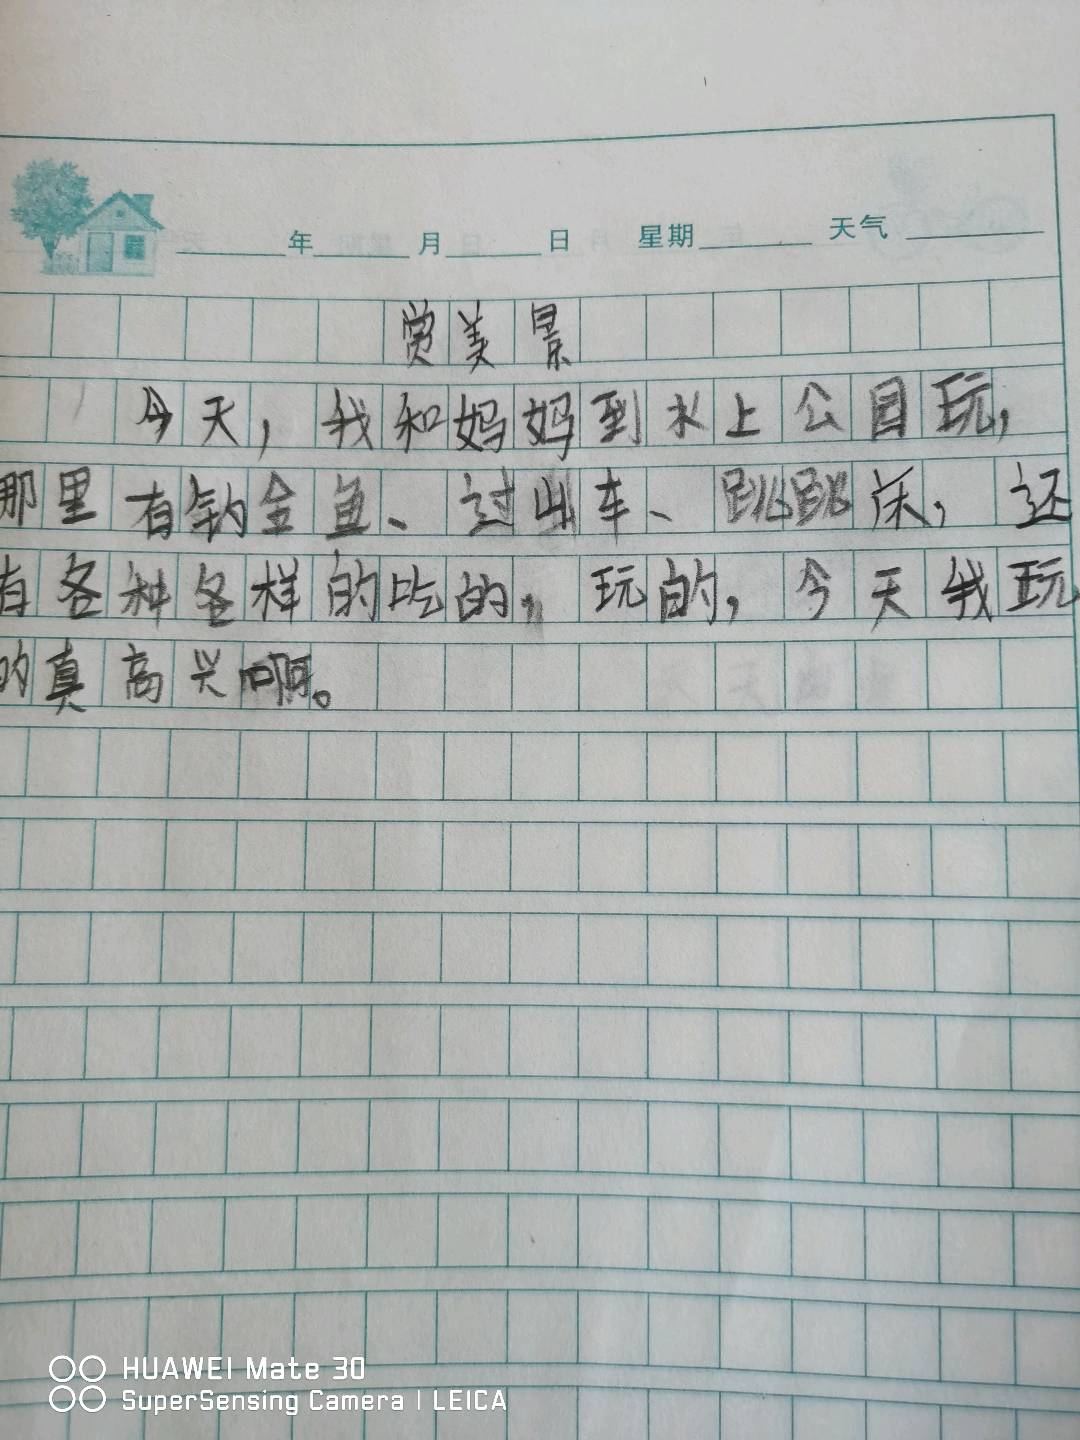 年 月 日 星期 天气
赏美景
今天，我和妈妈到水上公园玩，
那里有钓金鱼、过山车、跳跳床，还
有各种各样的吃的，玩的，今天我玩
的真高兴啊。
HUAWEI Mate 30
SuperSensing Camera | LEICA